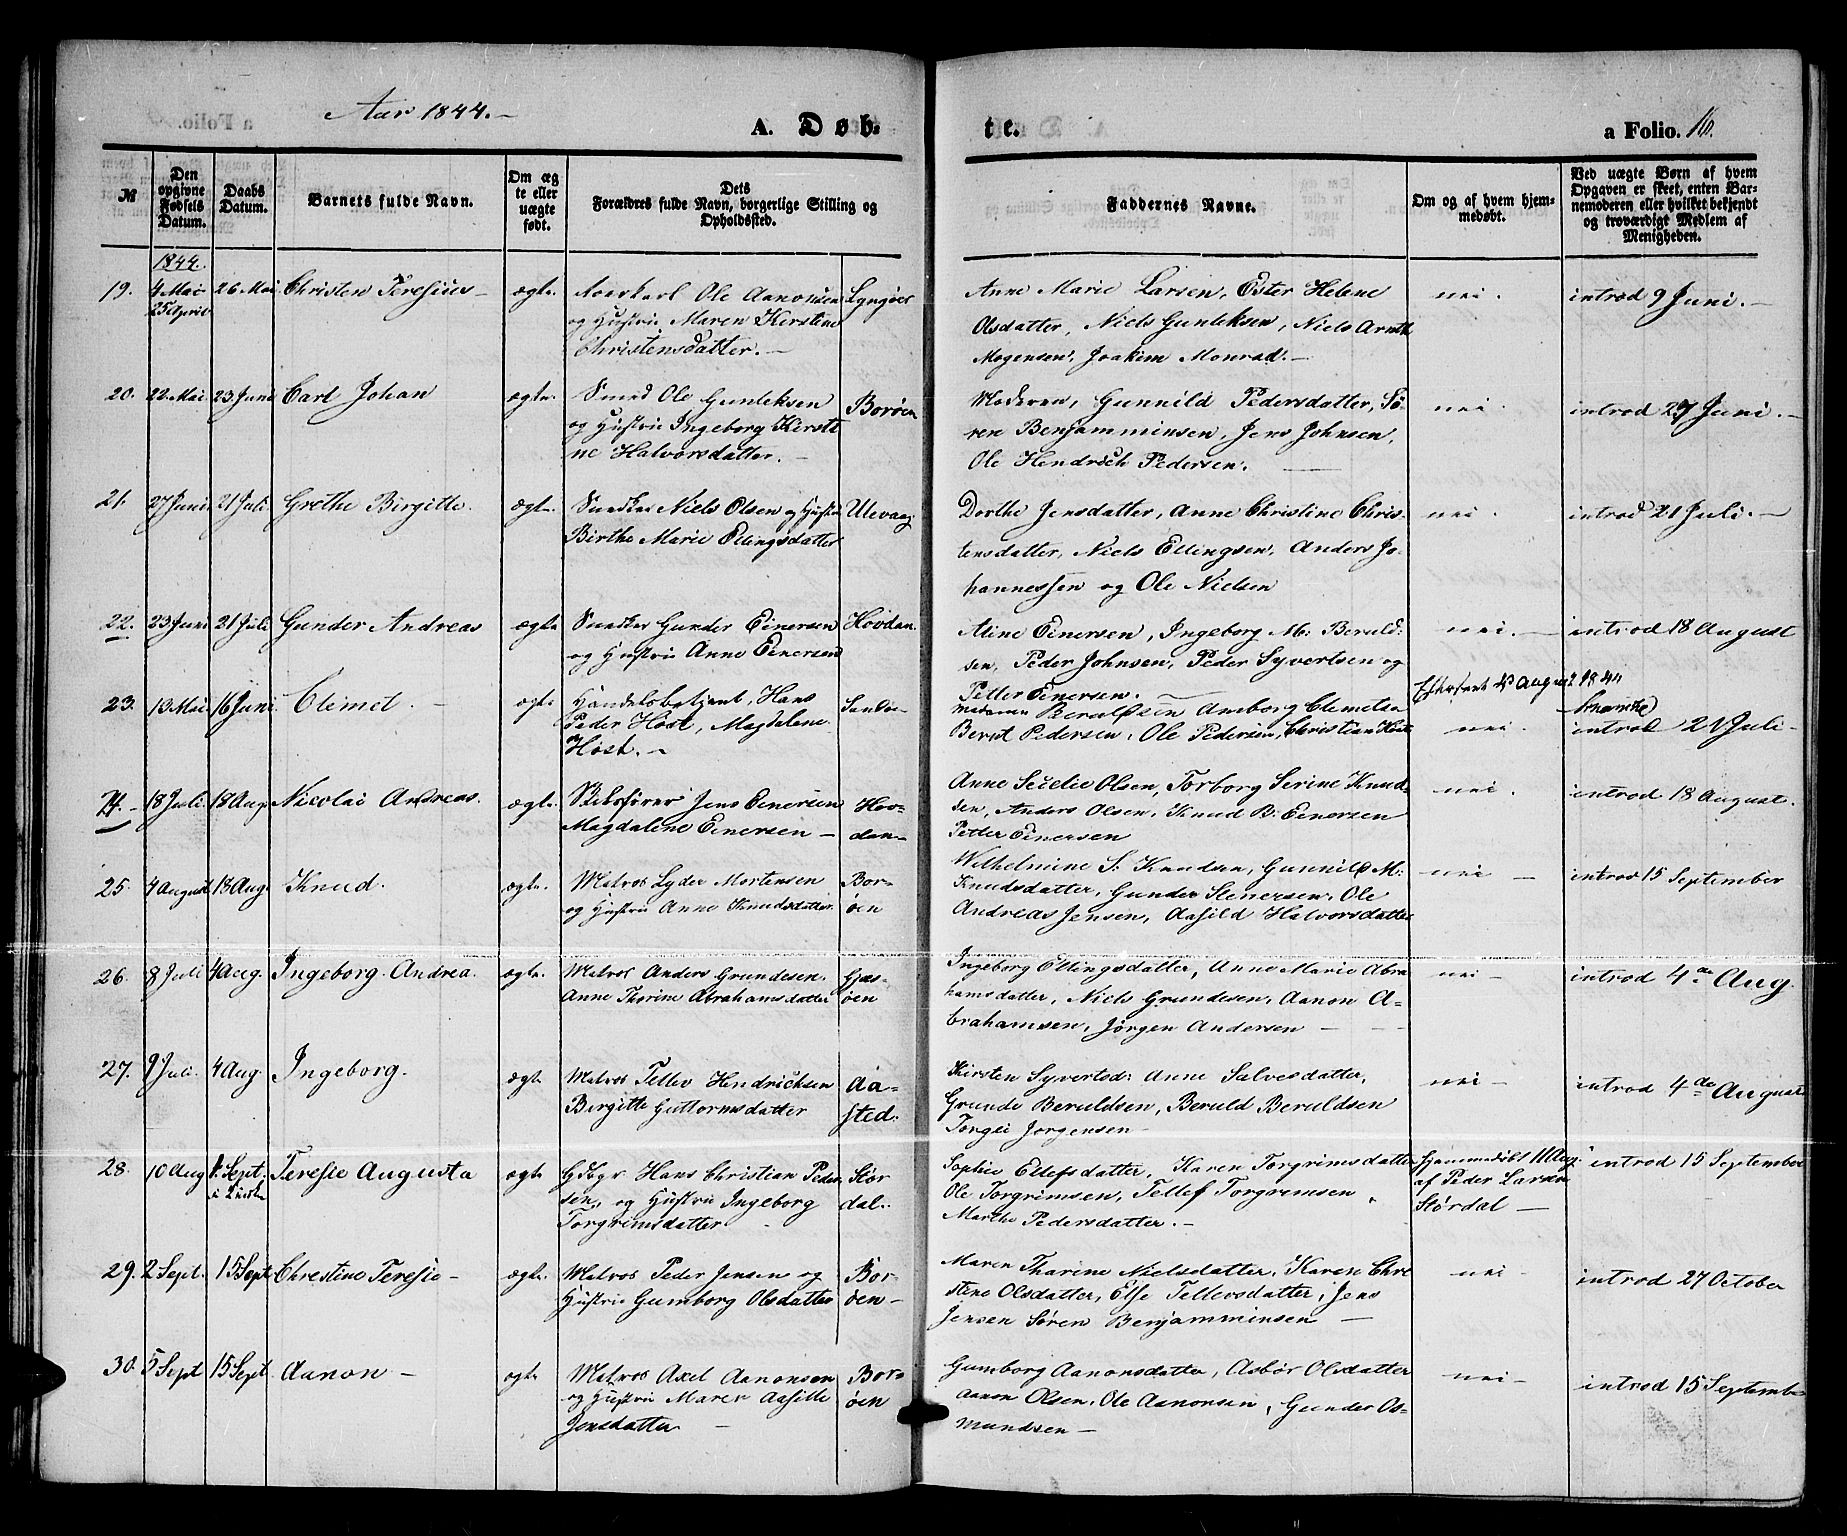 Aar 1844.-
A. Døb-
te.
a Folio. 16.
№
Den opgivne Fødsels Datum.
Daabs Datum.
Barnets fulde Navn.
Om æg te eller uægte født.
Dets
Forældres fulde Navn, borgerlige Stilling og
Opholdssted.
Faddernes Navne.
Om og af hvem hjem-
medøbt.
Ved uægte Børn af hvem
Opgaven er skeet, enten Bar-
nemoderen eller hvilket bekjendt
og troværdigt Medlem af
Menigheden.
1844.
19. 4 Mai 26 Mai Christen Teresius - ægte. Ole Aanonsen Lyngøer
25 April
og Hustrue Maren Kirstine
Christensdatter. -
Anne Marie Larsen, Ester Helene
Olsdatter, Niels Gunleksen, Niels Arnth
Mogensen, Joakim Monrad. -
nei. introd 9 Juni. -
20. 22 Mai 23 Juni Carl Johan ægte. Smed Ole Gunleksen Borøen
og Hustrue Ingeborg Kirsti
ne Halvorsdatter. -
Moderen, Gunnild Pedersdatter, Sø-
ren Benjamminsen, Jens Johnsen,
Ole Hendrich Pedersen.
nei. introd 27 Juni. -
21. 27 Juni 21 Juli Grethe Birgitte. ægte. Snedker Niels Olsen og Hustru Ulevaag
Birthe Marie Ellingsdatter
Dorthe Jensdatter, Anne Christine Chris-
tensdatter, Niels Ellingsen, Anders Jo-
hannessen og Ole Nielsen
nei. introd 21 Juli. -
22. 23 Juni 21 Juli Gunder Andreas ægte Snedker Gunder Einersen Hovdan.
og Hustrue Anne Einersen
Aline Einersen, Ingeborg M: Beruld-
sen, Peder Johnsen, Peder Syvertsen og
Petter Einersen.
nei. - introd 18 August
23. 13 Mai 16 Juni Clemet. - ægte Handelsbetjent, Hans
Peder Høst, Magdalene
Høst. -
Madamen Beruldsen Amborg Clemetsen
Bernt Pedersen, Ole Pedersen, Christian Høst
nei. introd 21 Juli -
24. - 18 Juli 18 Aug Nicolai Andreas. ægte. Skibsfører Jens Einersen Hov-
Magdalene Einersen - dan-
Anne Secelie Olsen, Torborg Serine Knud-
sen, Anders Olsen, Knud B: Einersen
Petter Einersen
nei. introd 18 August.
25. 4 August 18 Aug Knud. ægte. Matros Lyder Mortensen Bor-
og Hustrue Anne Knudsdatter. øen
Wilhelmine S. Knudsen, Gunnild M:
Knudsdatter, Gunder Stenersen, Ole
Andreas Jensen, Aasild Halvorsdatter
nei - introd 15 September
26. 8 Juli 4 Aug. Ingeborg Andrea. ægte. Matros Anders Grundesen. Gjes-
Anne Thorine Abrahamsdatter øen
Ingeborg Ellingsdatter, Anne Marie Abra
hamsdatter, Niels Grundesen, Aanon A-
brahamsen, Jørgen Andersen -
nei - introd 4de Aug.
27. 9 Juli. 4 Aug Ingeborg. ægte Matros Tellev Hendricksen Aa-
Birgitte Guttormsdatter sted.
Kirsten Syvertsd: Anne Salvesdatter,
Grunde Beruldsen, Beruld Beruldsen
Torgei Jørgensen -
nei - introd 4de August
28. 10 Aug 1. Sept. Teresie Augusta ægte Gdbgr Hans Christian Peder Stør
sen, og Hustrue Ingeborg dal.
Torgrimsdatter
Sophie Ellefsdatter, Karen Torgrimsdatter
Ole Torgrimsen, Tellef Torgrimsen
Marthe Pedersdatter. -
Hjemmedøbt
af Peder Larsen
Størdal - introd 15 September
29. 2 Sept. 15 Sept Christine Teresie - ægte. Matros Peder Jensen og Bor-
Hustrue Gumborg Olsdatter øen -
Maren Tharine Nielsdatter, Karen Chri
stine Olsdatter, Else Tellevsdatter, Jens
Jensen Søren Benjamminsen -
nei - introd 27 October
30. 5 Sept 15 Sept Aanon - ægte Matros Axel Aanonsen Bor-
og Hustrue Maren Aasille øen
Jensdatter -
Gumborg Aanonsdatter, Asbør Olsdatter
Aanon Olsen, Ole Aanonsen, Gunder Os-
mundsen -
nei - introd 15 September